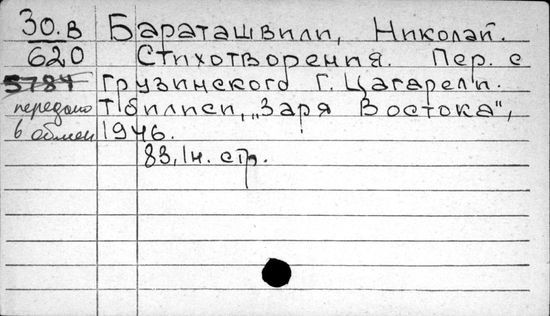 30.В Бараташвили, Николай.
620 Стихотворения. Пер. с
5784 грузинского Г. Цагарели.
передано Тбилиси, „Заря Востока",
в обмен 1946.
83, 1н. стр.